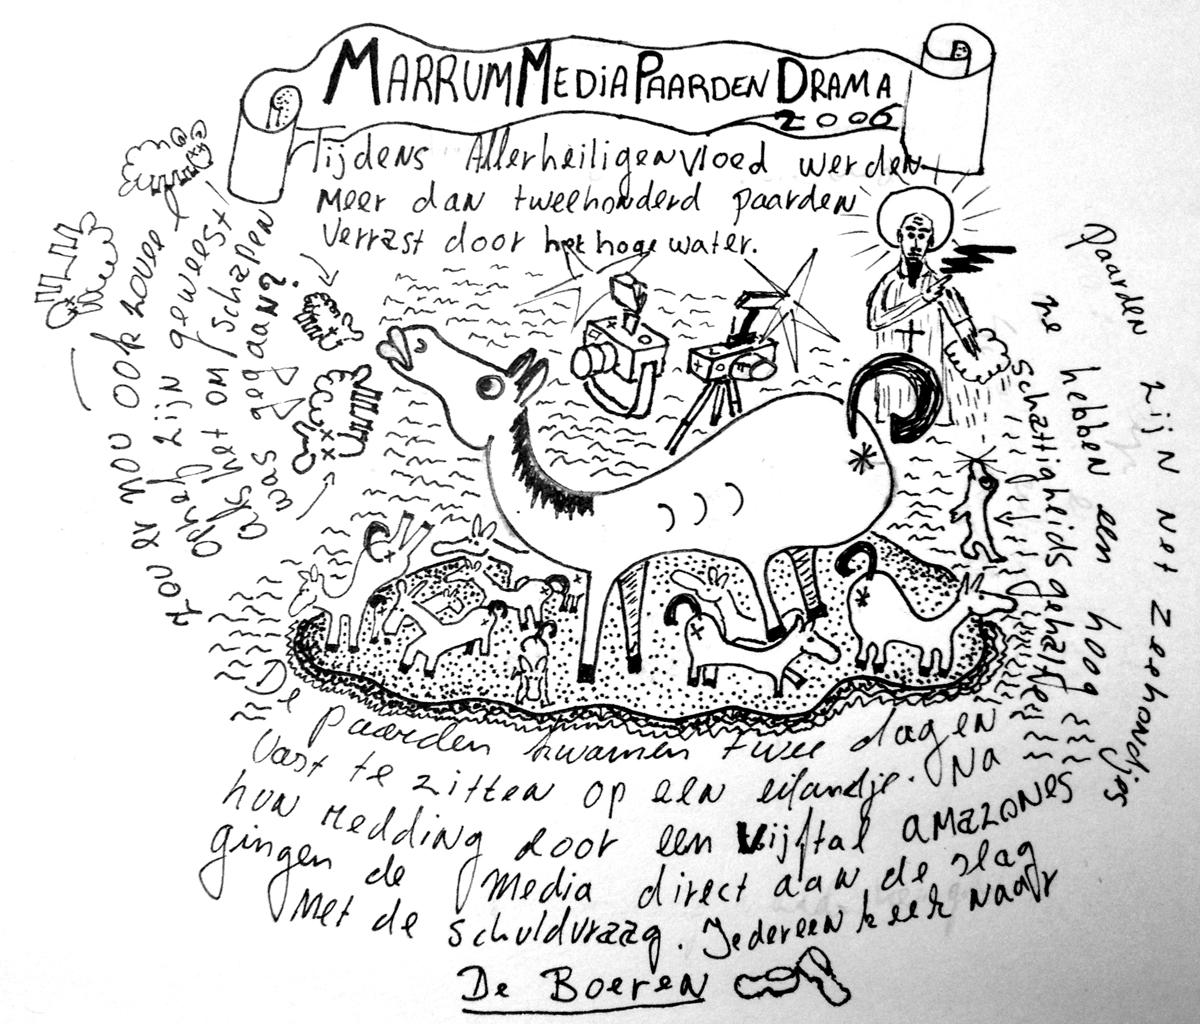 MARRUM MEDIA PAARDEN DRAMA
2006
Tijdens Allerheiligenvloed werden
meer dan tweehonderd paarden
verrast door het hoge water.
zou er nou ook zoveel
ophef zijn geweest
als het om schapen
was gegaan?
Paarden zijn net zeehondjes
ze hebben een hoog
schattigheidsgehalte
De paarden kwamen twee dagen
vast te zitten op een eilandje. Na
hun redding door een vijftal amazones
gingen de media direct aan de slag
met de schuldvraag. Iedereen keek naar
De Boeren